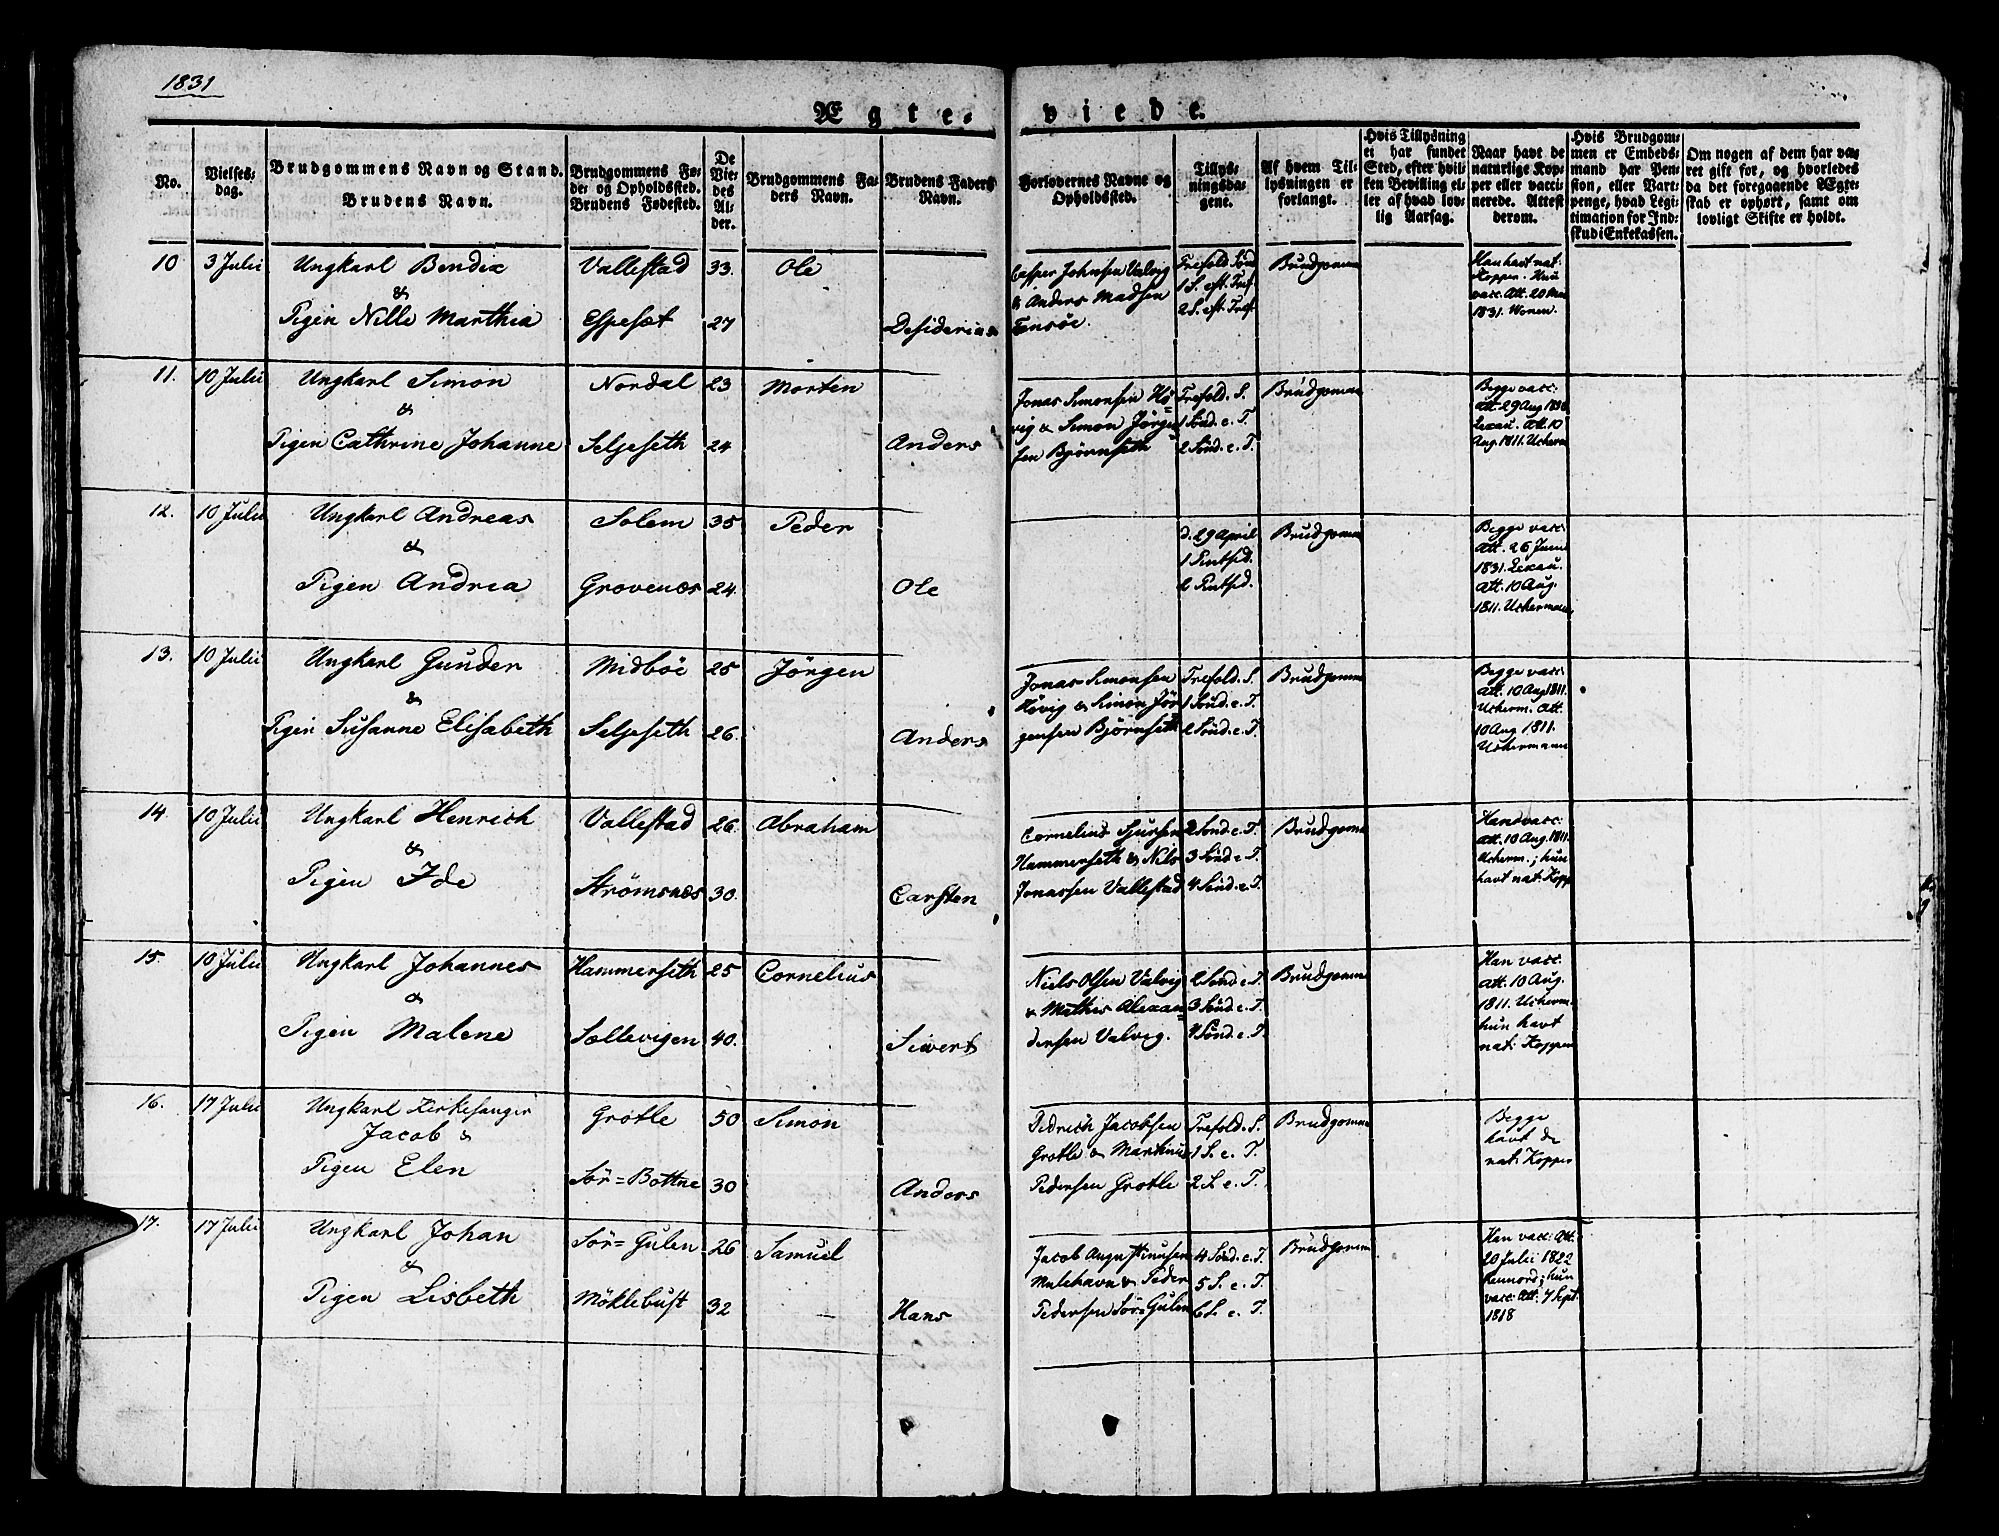 1831
Ægte- viede.
No.
Vielses-
dag.
Brudgommens Navn og Stand.
Brudens Navn.
Brudgommens Fø-
de- og Opholdssted.
Brudens Fødested.
De
Vie-
des
Al-
der.
Brudgommens Fa-
ders Navn.
Brudens Faders
Navn.
Forlovernes Navne og
Opholdssted.
Tillys-
ningsda-
gene.
Af hvem Til-
lysningen er
forlangt.
Hvis Tillysning
ei har fundet
Sted, efter hvil-
ken Bevilling el-
ler af hvad lov-
lig Aarsag.
Naar havt de
naturlige Kop-
per eller vacci-
nerede. Attest
derom.
Hvis Brudgom-
men er Embeds-
mand har Pen-
sion, eller Vart-
penge, hvad Legi-
timation for Ind-
skud i Enkekassen.
Om nogen af dem har væ-
ret gift før, og hvorledes
da det foregaaende Ægte-
skab er ophørt, samt om
lovligt Skifte er holdt.
10 3 Julii Ungkarl Bendix Vallestad 33. Ole
&
Pigen Nille Marthia Espesæt 27 Desiderius
Casper Johnsen Valvig
& Anders Madsen
Tensöe.
Trefold. Sönd
1 S. eft. Tref.
2 S. eft. Tref.
Brudgomm
Han havt nat.
Kopper. Hun
vacc. Att. 20 Mai
1831.
11. 10 Julii Ungkarl Simon Nordal 23 Morten
&
Pigen Cathrine Johanne Seljeseth 24 Anders
Jonas Simonsen Hö=
vig & Simon Jörgen
sen Björnseth
Trefold. S.
1 Sönd. e. T.
2 Sönd. e. T.
Brudgomm
Begge vacc:
Att. 29 Aug
Lexau. Att. 10
Aug. 1811. Ucherm
12. 10 Julii Ungkarl Andreas Solem 35 Peder
&
Pigen Andrea Grovenæs 24. Ole
d. 29 April
1
2
Brudgomm
Begge vacc:
Att. 26 Juni
1831. Lexau.
Att. 10 Aug.
1811. Ucherman
13. 10 Julii Ungkarl Gunder Midböe 25 Jörgen
&
Pigen Susanne Elisabeth Seljeseth 26. Anders
Jonas Simonsen
Hövig & Simon Jör
gensen Björnseth
Trefold. S.
1 Sönd. e. T.
2 Sönd. e. T.
Brudgomm
Begge vacc:
Att. 10 Aug 1811.
Ucherm. Att.
10 Aug 1811.
Uchermann
14. 10 Julii Ungkarl Henrich Vallestad 26. Abraham
&
Pigen Ide Strömsnæs 30. Carsten
Cornelius Sjursen
Hammerseth & Nils
Jonassen Vallestad
2 Sönd. e. T.
3 Sönd e T.
4 Sönd. e. T.
Brudgomm
Han vacc:
Att. 10 Aug. 1811.
Ucherm.; hun
havt nat: Kopp
15. 10 Julii Ungkarl Johannes Hammerseth 25 Cornelius
&
Pigen Malene Sællevigen 40. Sivert
Niels Olsen Valvig
& Mathis Alexan=
dersen Valvig.
2 Sönd e. T.
3 Sönd. e. T.
4 Sönd. e. T.
Brudgomm
Han vacc:
Att. 10 Aug.
1811. Ucherm.
hun havt
nat: Kopper
16. 17 Julii Ungkarl Kirkesanger Grotle 50 Simon
Jacob &
Pigen Elen Sör=Bottne 30 Anders
Didrich Jacobsen
Grotle & Martinus
Pedersen Grotle
Trefold. S.
1 S. e. T.
2 S. e. T.
Brudgomm
Begge
havt de
nat: Kopper
17. 17 Julii Ungkarl Johan Sör=Gulen 26 Samuel
&
Pigen Lisbeth Möklebust 32 — Hans
Jacob Augustinusen
Mulehavn & Peder
Pedersen Sör=Gulen
4 Sönd. e. T.
5 S. e. T.
6 S. e. T.
Brudgomm
Han vacc: Att.
20 Julii 1822
hun
vacc: Att. 7 Sept.
1818